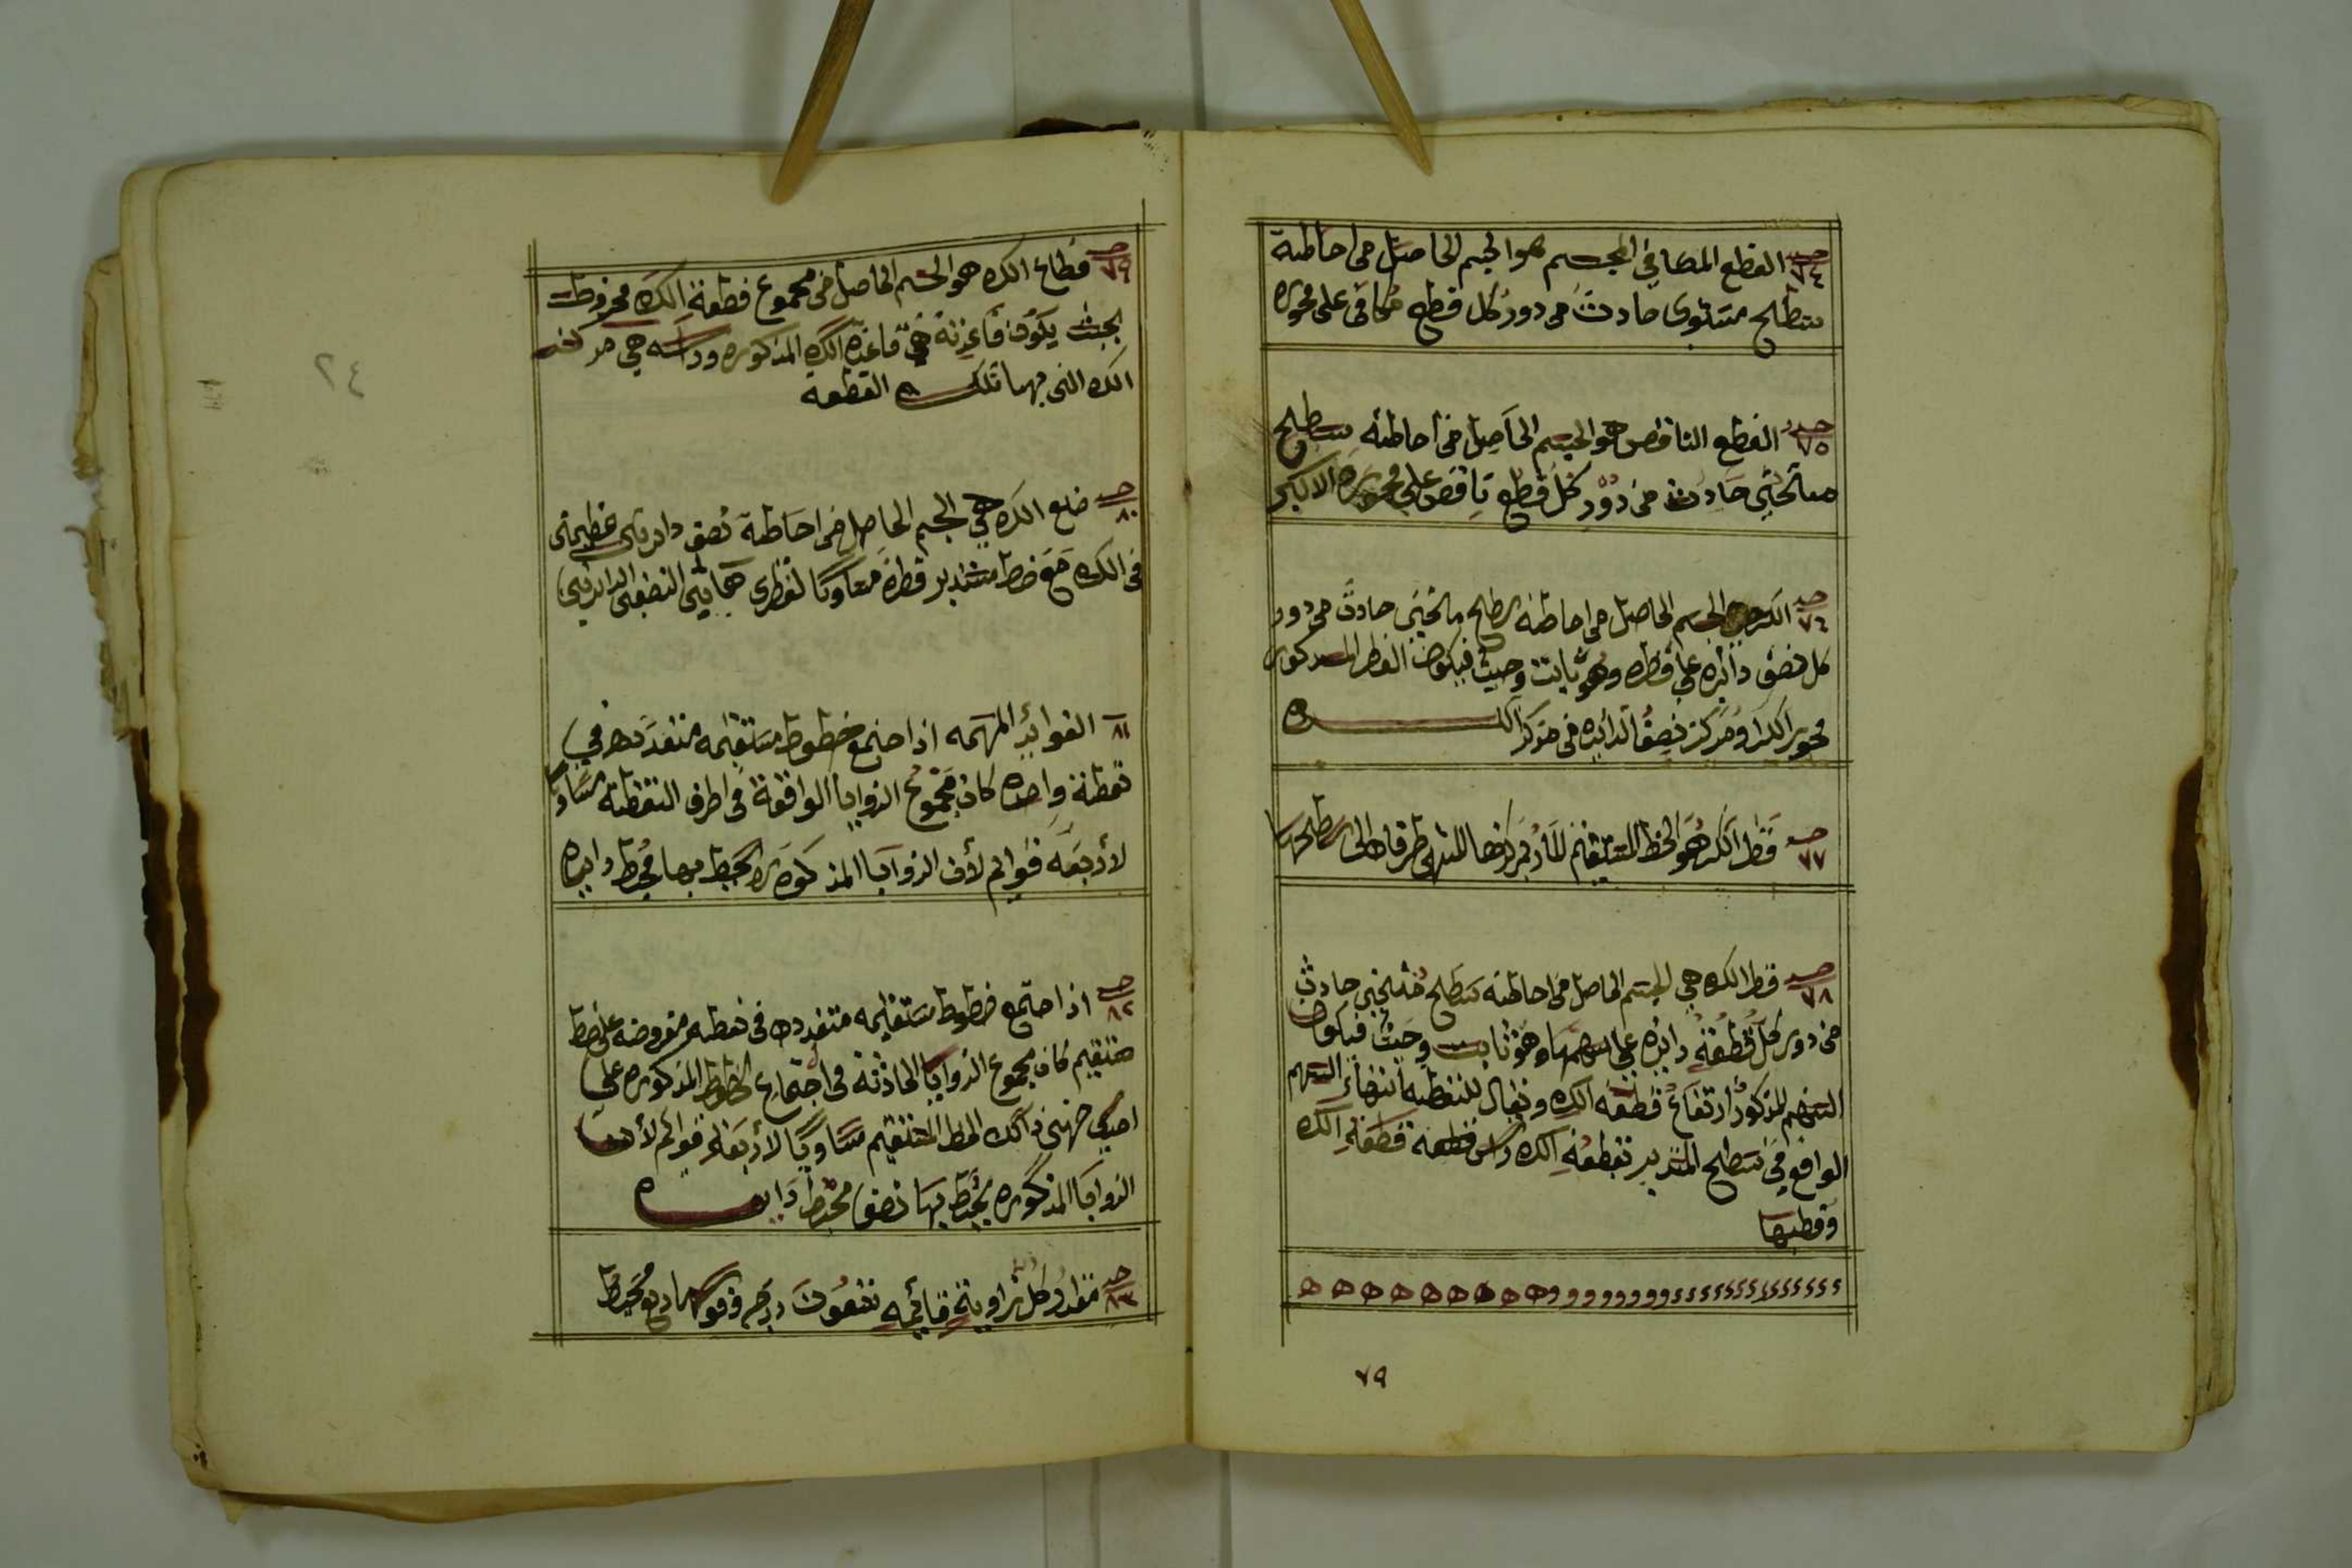 حد ٧٤ القطع المكافي المجسم هو الجسم الحاصل من احاطة
سطح مستوى حادث من دور كل قطع مكافى على محوره
حد ٧٥ القطع الناقص هو الجسم الحاصل من احاطته سطح
منحني حادث من دور كل قطع ناقص على محوره الاكبر
حد ٧٦ الكره هي الجسم الحاصل من احاطته سطح منحني حادث من دور
كل نصف دائره على قطره وهو ثابت وحيث فيكون القطر المذكور
محور الكره ومركز نصف الدائره في مركز الكره
حد ٧٧ قطر الكره هو الخط المستقيم المار بمركزها المنتهى طرفاه الى سطحها
حد ٧٨ قطر الكره هي الجسم الحاصل من احاطته سطح منحني حادث
من دور كل قطعة دائره على سهمها وهو ثابت وحيث فيكون
السهم المذكور ارتفاع قطعه الكره ويقال للنقطه انتهاء السهم
الواقع في سطح المستدير نقطعة الكره راس قطعة قطعة الكره
وقطبها
٧٩
٤٢
حد ٧٩ قطاع الكره هو الجسم الحاصل من مجموع قطعة الكره مخروطه
بحيث يكون قاعدته هي قاعدة الكره المذكوره وراسه هي مركز
الكره التى بها تلك القطعة
حد ٨٠ ضلع الكره هي الجسم الحاصل من احاطة نصف دايرتى عظيمتى
في الكره مع خط مستدير قطره مساويا لقطرى هاتين النصفى الدايرتين
٨١ الفوائد المهمه اذا اجتمع خطوط مستقيمه متعدده في
نقطة واحده كان مجموع الزوايا الواقعة في اطرف النقطه مساويا
لأربعه قوايم لأن الزوايا المذكوره يحيط بها محيط دايره
حد ٨٢ اذا اجتمع خطوط مستقيمه متعدده في نقطه مفروضه على خط
مستقيم كان مجموع الزوايا الحادثه من اجتماع الخطوط المذكوره على
احدى جهتى ذالك الخط المستقيم مساويا لأربعة قوائم لأن
الزوايا المذكوره يحيط بها نصف محيط دايره
حد ٨٣ مقدار كل زاوية قايمه تسعون درجه وقوسها ربع محيط